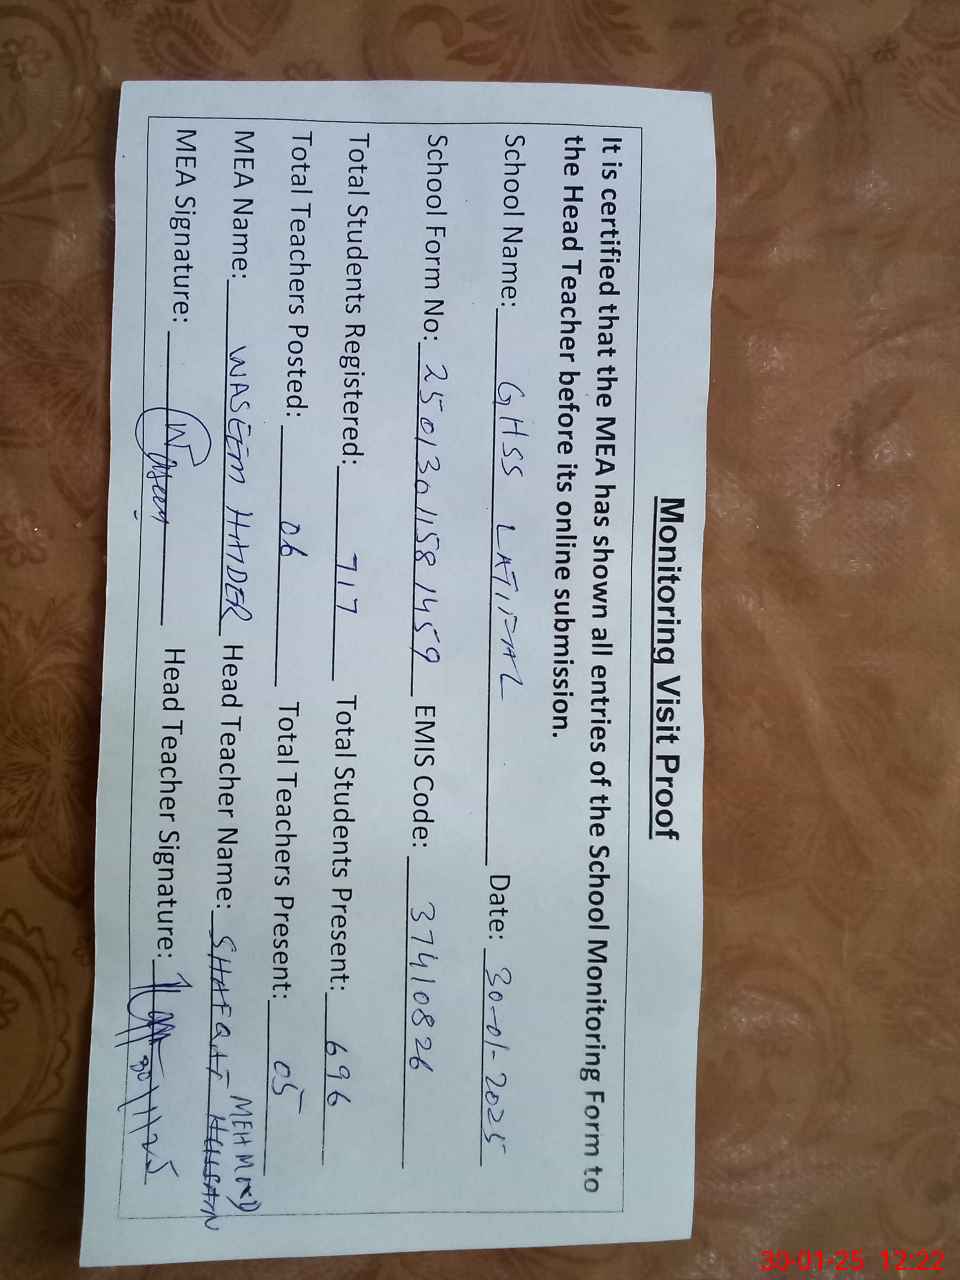 Monitoring Visit Proof
It is certified that the MEA has shown all entries of the School Monitoring Form to
the Head Teacher before its online submission.
School Name: GHSS LATIFAL Date: 30-01-2025
School Form No: 2501301581459 EMIS Code: 37410826
Total Students Registered: 717 Total Students Present: 696
Total Teachers Posted: 06 Total Teachers Present: 05
MEHMOOD
MEA Name: WASEEM HAIDER Head Teacher Name: SHAFQAT HUSSAIN
MEA Signature: Waseem Head Teacher Signature: 30/1/25
30-01-25 12:22